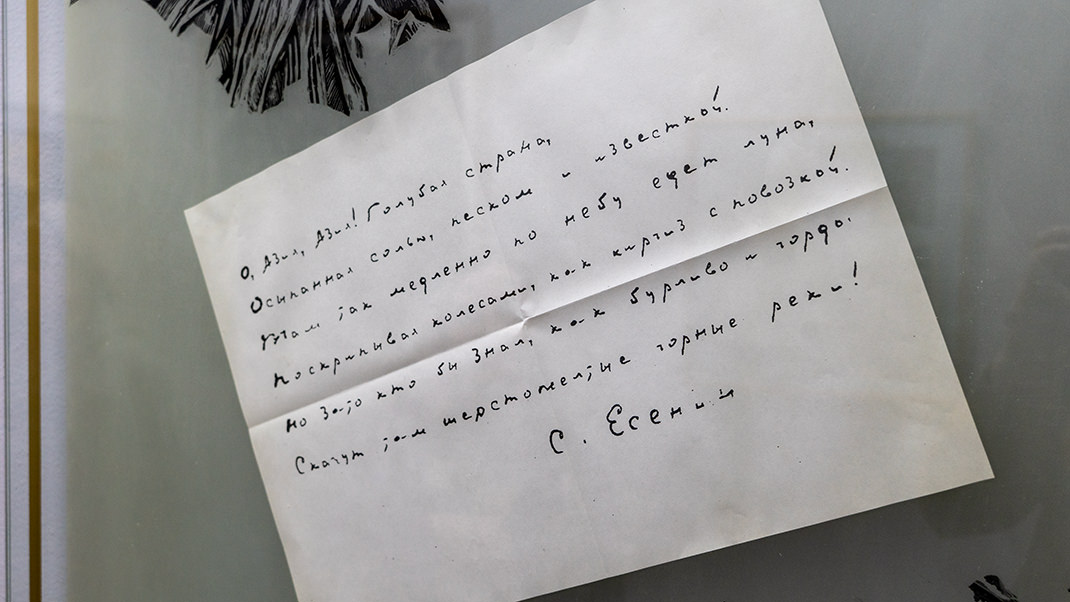 О, Азия, Азия! Голубая страна,
Осыпанная солью, песком и известкой.
Там так медленно по небу едет луна,
Поскрипывая колесами, как киргиз с повозкой.
Но зато кто бы знал, как бурливо и гордо.
Скачут там шерстожелтые горные реки!
С. Есенин